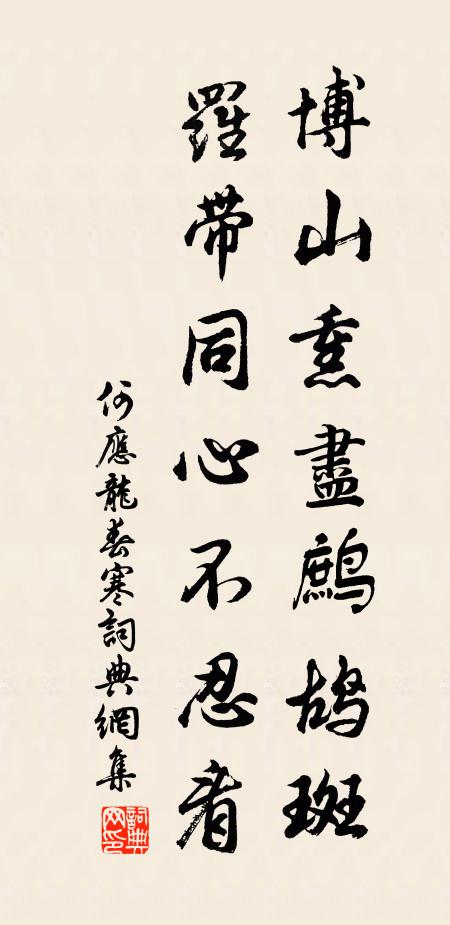 博山熏盡鷓鴣斑
羅帶同心不忍看
何應龍春寒詞典網集
詞典網印